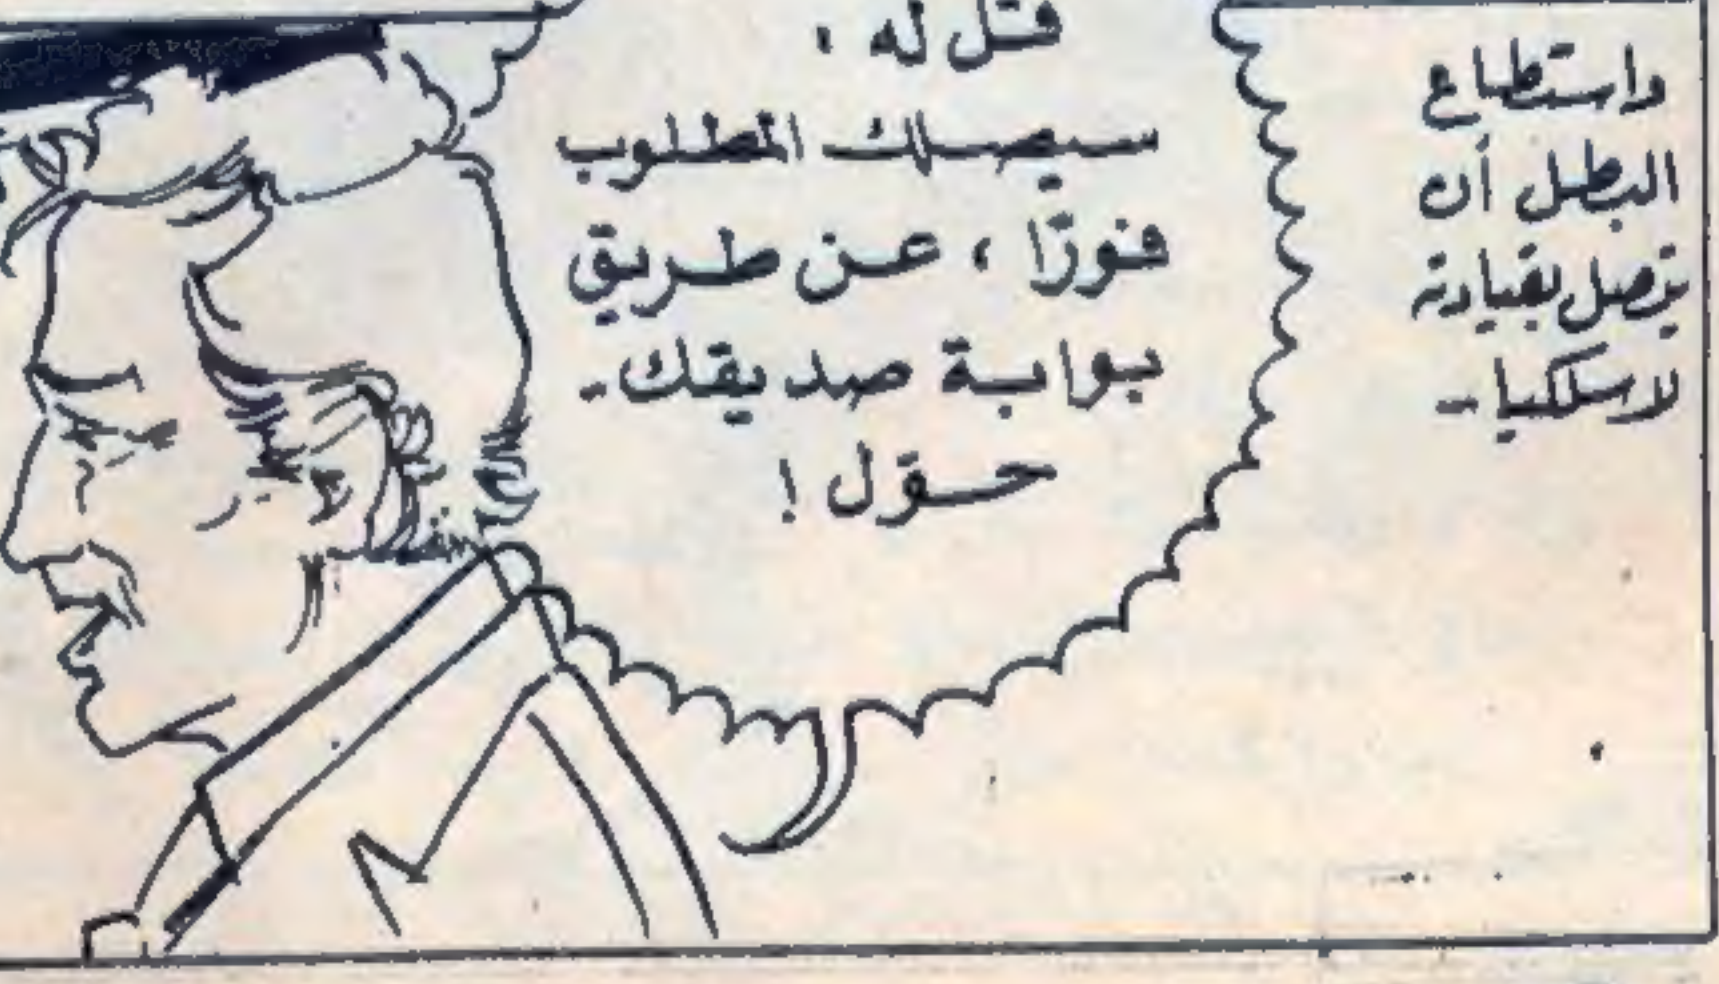 واستطاع
البطل أن
يتصل بقيادته
لاسلكيا ..
قل له ،
سيصلك المطلوب
فورًا ، عن طريق
بوابة صديقك ..
حوّل !